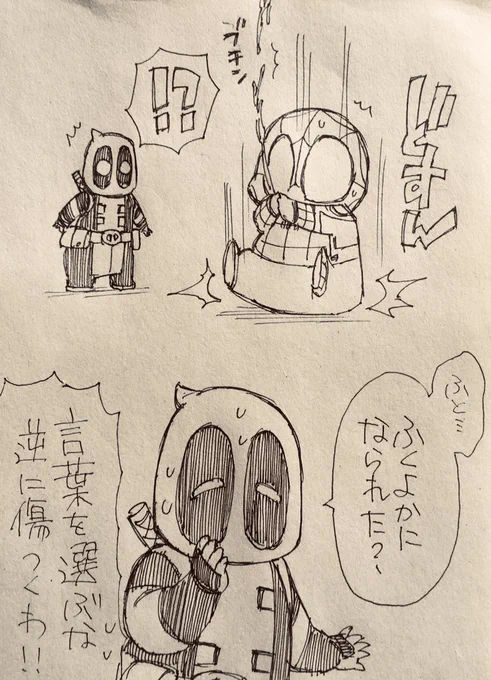 どすん
ブチン
!?
ふと…
ふくよかに
なられた?
言葉を選ぶな
逆に傷つくわ!!